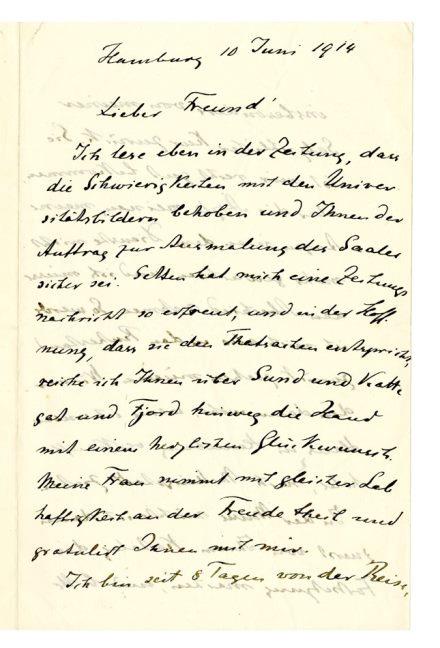 Hamburg 10 Juni 1914
Lieber Freund!
Ich lese eben in der Zeitung, dass
die Schwierigkeiten mit den Univer
sitätsbildern behoben und Ihnen der
Auftrag zur Ausmalung des Saales
sicher sei. Selten hat mich eine Zeitungs
nachricht so erfreut, und in der Hoff-
nung, dass sie den Thatsachen entspricht,
reiche ich Ihnen über Sund und Katte
gat und Fjord hinweg die Hand
mit einem herzlichsten Glückwunsch.
Meine Frau nimmt mit gleicher Leb
haftigkeit an der Freude theil und
gratulirt Ihnen mit mir.
Ich bin seit 8 Tagen von der Reise,